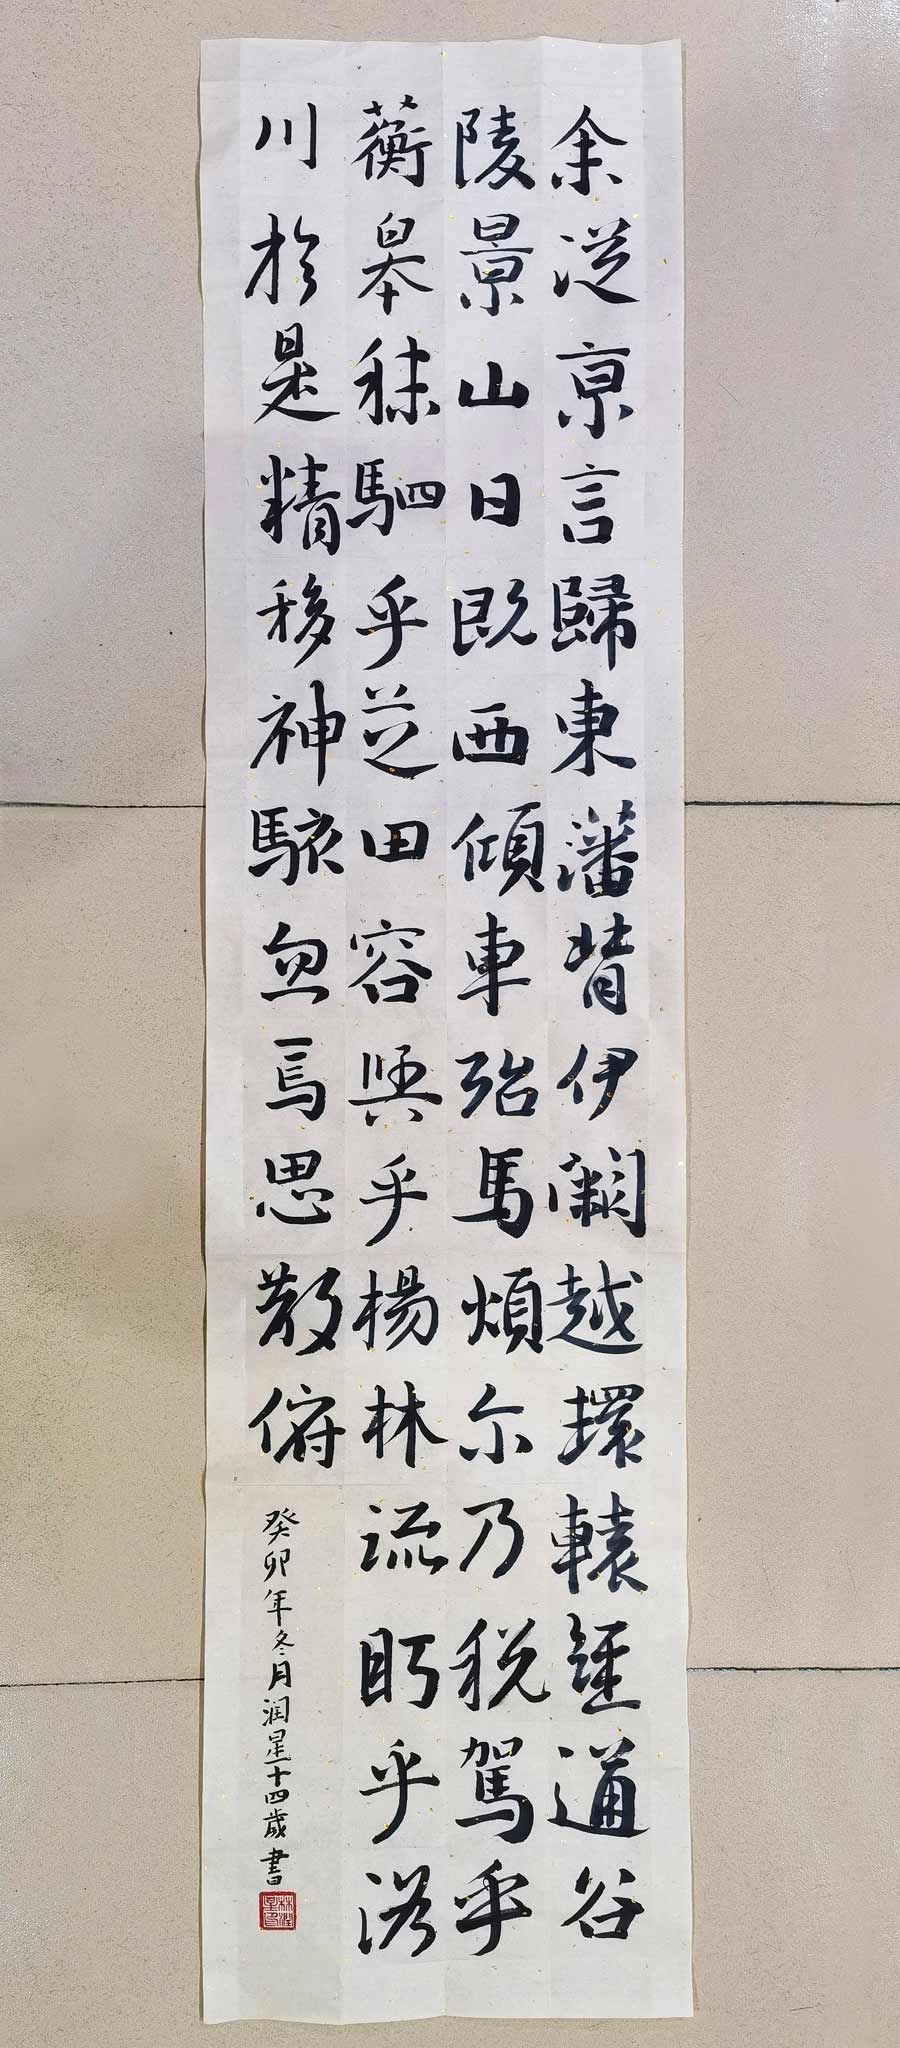 余從京言歸東藩背伊闕越環轅經通谷
陵景山日既西傾車殆馬煩尔乃税駕乎
蘅皋秣駟乎芝田容與乎楊林流眄乎洛
川於是精移神駭忽焉思散俯
癸卯年冬月润星十四歲書
林潤星印